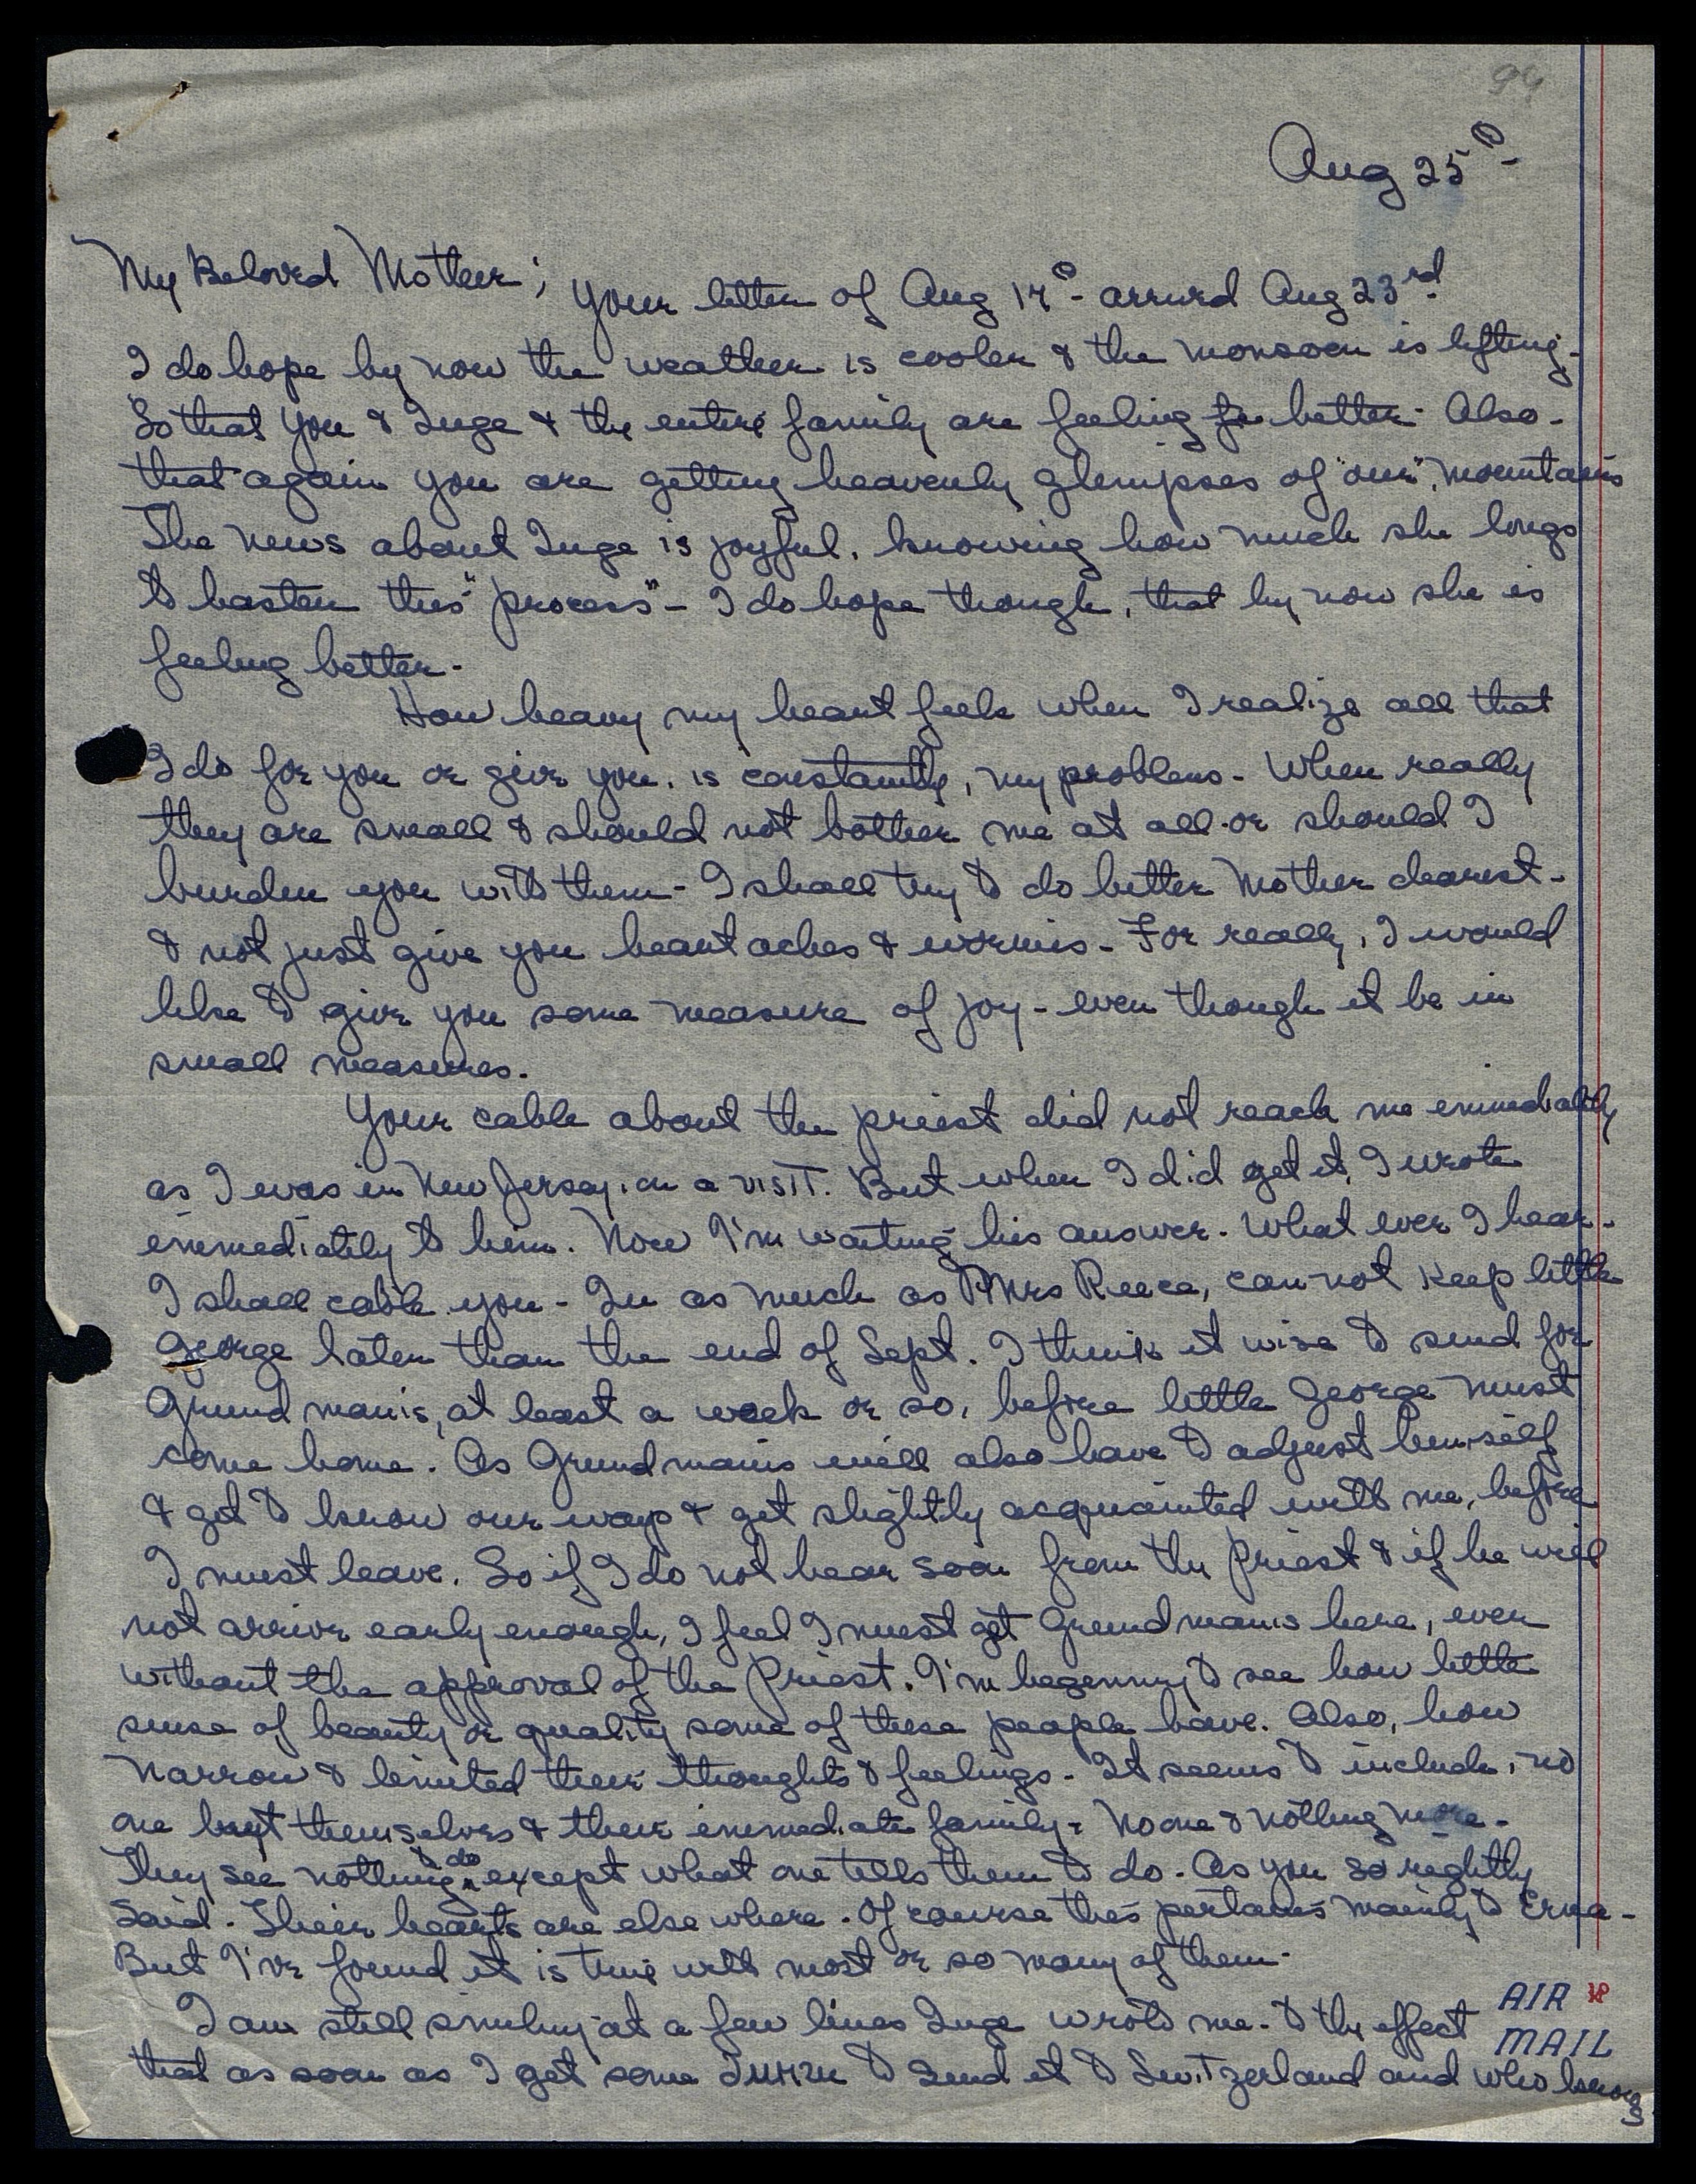 94
Aug 25th
My Beloved Mother; Your letter of Aug 17th arrivd Aug 23rd
I do hope by now the weather is cooler & the monsoon is lifting -
So that you & Inge & the entire family are feeling better - Also -
that again you are getting heavenly glimpses of "our" mountains
The news about Inge is joyful, knowing how much she longs
to hasten this "process" - I do hope though, that by now she is
feeling better -
How heavy my heart feels when I realize all that
I do for you or give you, is constantly, my problems - When really
they are small & should not bother me at all - or should I
burden you with them - I shall try to do better Mother dearest -
& not just give you heart aches & worries - For really, I would
like to give you some measure of joy - even though it be in
small measures.
Your cable about the priest did not reach me emmediatly
as I was in New Jersey, on a visit. But when I did get it, I wrote
emmediately to him. Now I'm waiting his answer - What ever I hear -
I shall cable you - In as much as Mrs Reece, can not keep little
George later than the end of Sept. I think it wise to send for
Grundmanis, at least a week or so, before little George must
come home. As Grundmanis will also have to adjust himself
& get to know our ways & get slightly acquainted with me, before
I must leave. So if I do not hear soon from the Priest & if he will
not arrive early enough, I feel I must get Grundmanis here, even
without the approval of the Priest. I'm beginning to see how little
sense of beauty or quality some of these people have. Also, how
narrow & limited their thoughts & feelings - It seems to include, no
one but themselves & their emmediate family - No one & nothing more -
They see nothing to do except what one tells them to do - As you so rightly
said - Their hearts are else where - Of course this pertains mainly to Erna -
But I've found it is true with most or so many of them -
I am still smiling at a few lines Inge wrote me - to the effect
that as soon as I get some to send it to Switzerland and who knows
AIR MAIL